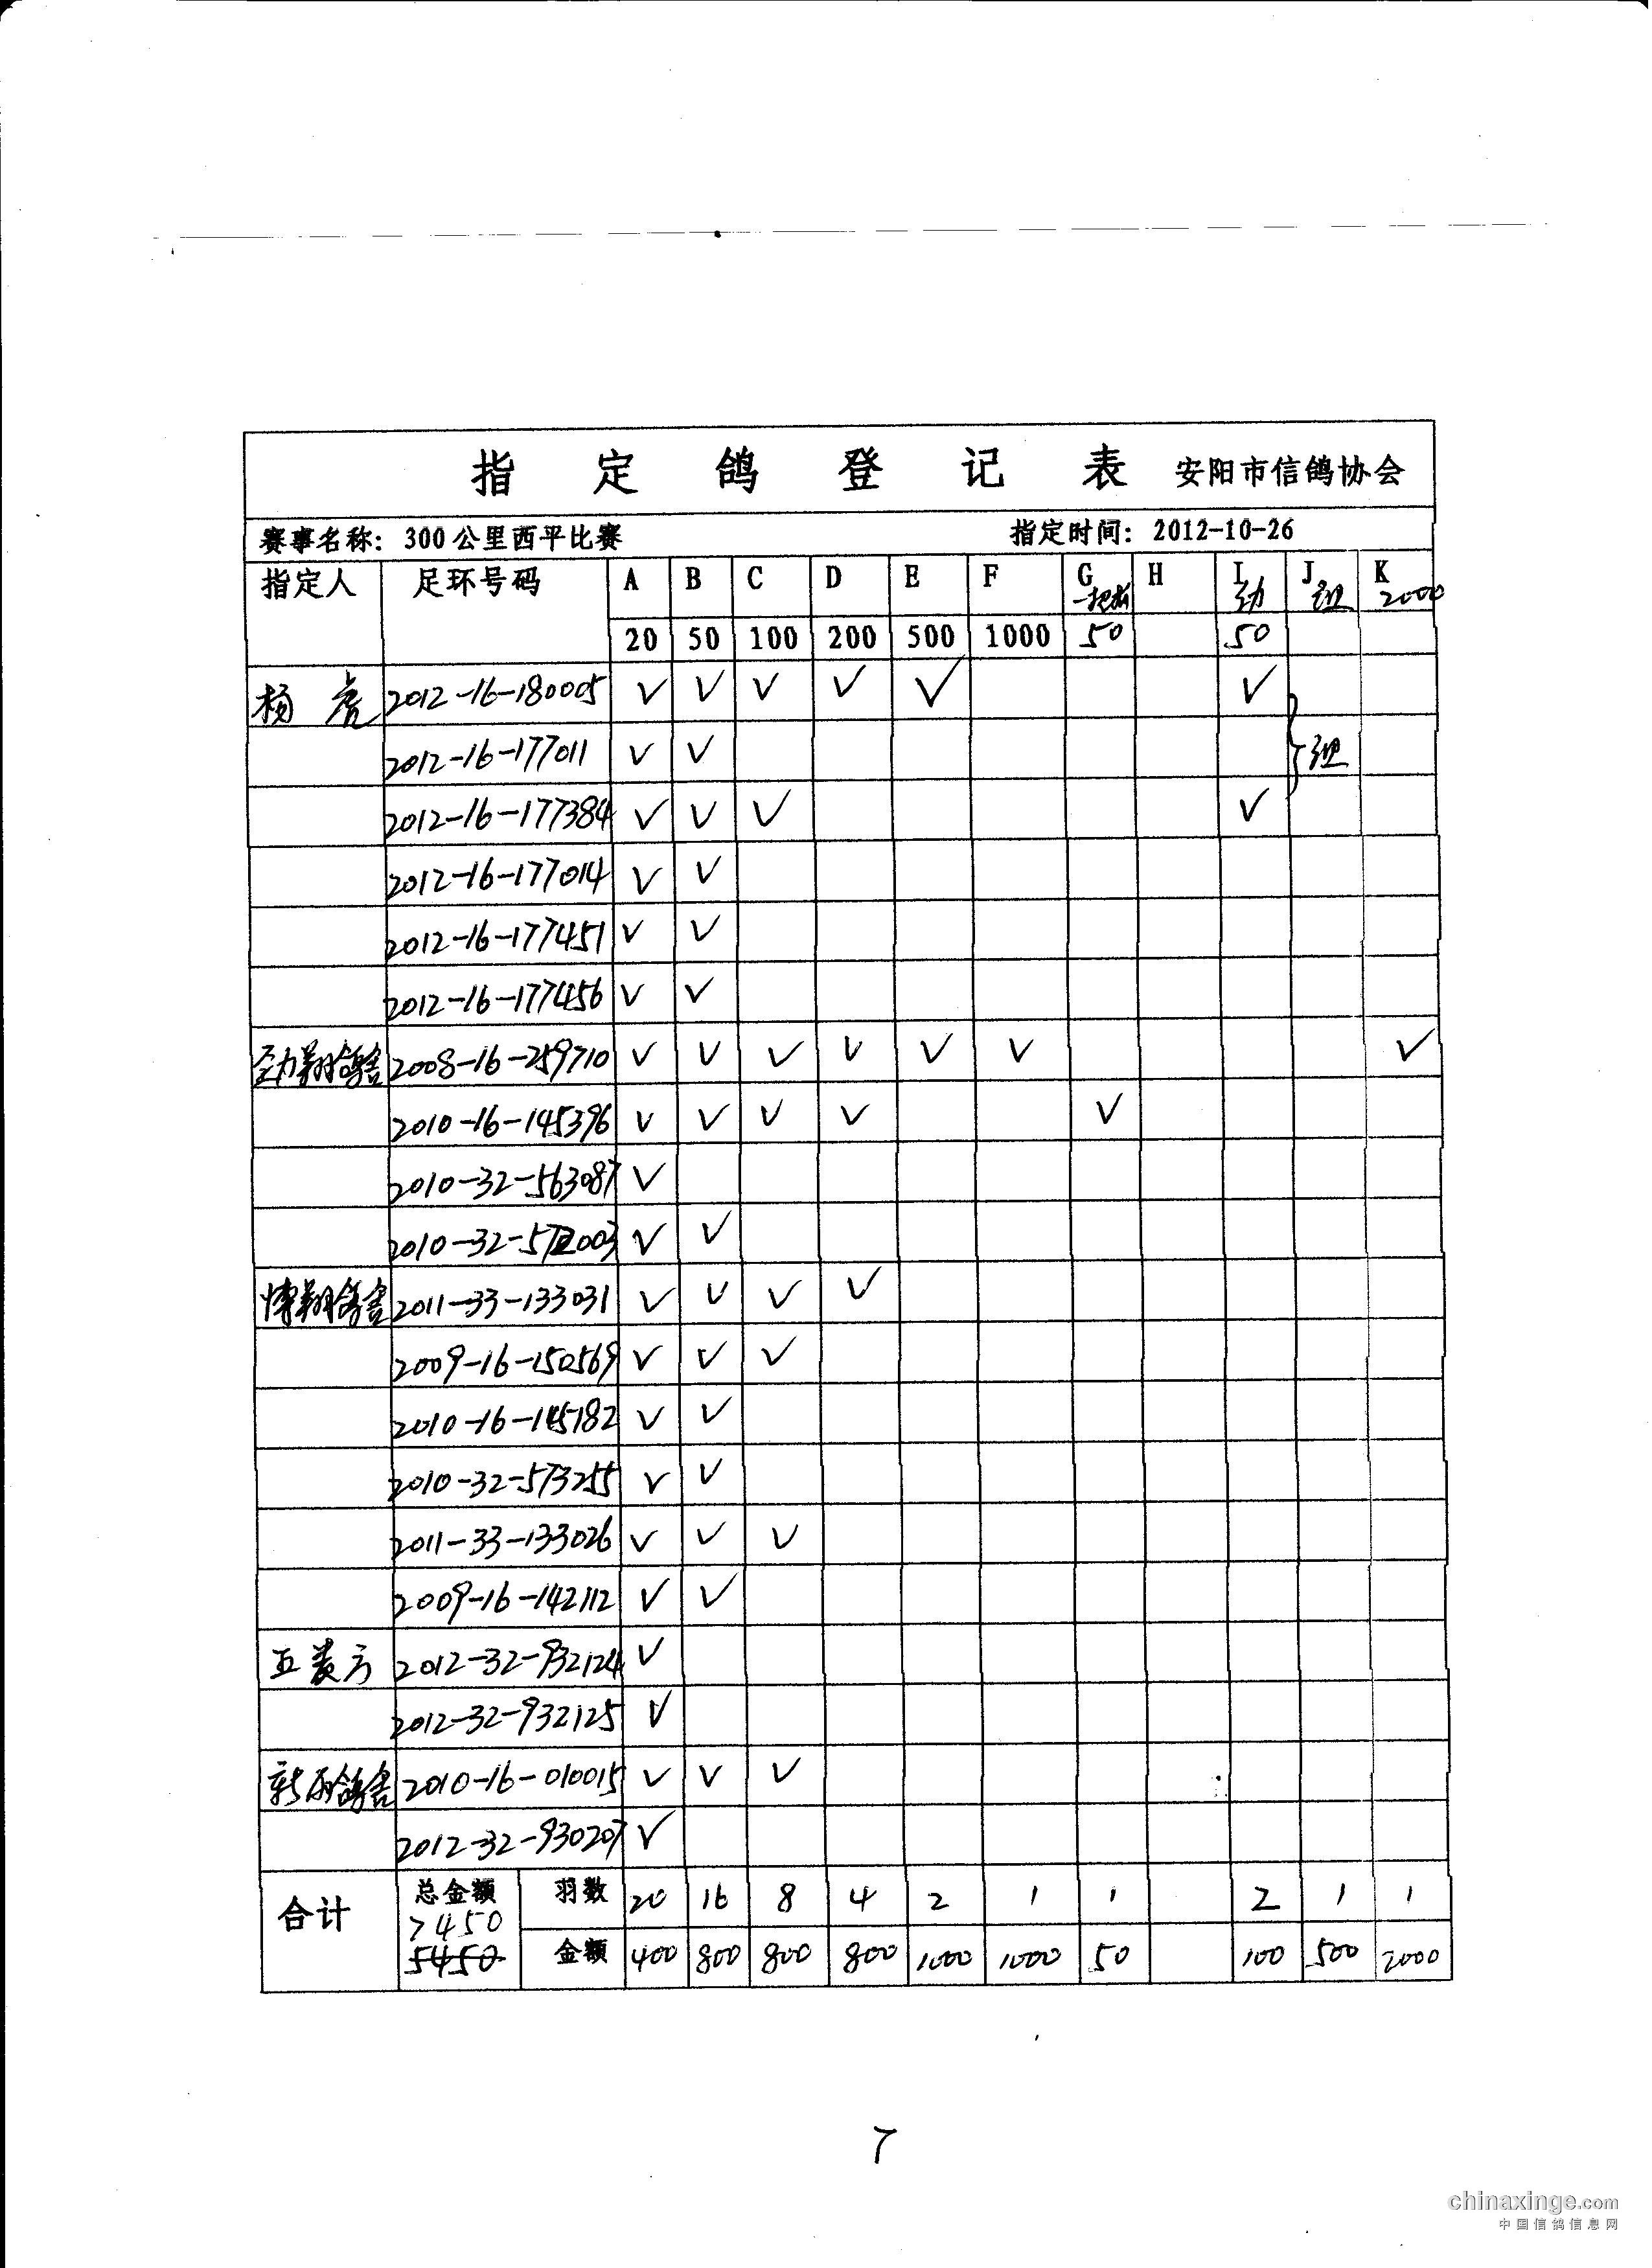 指定鸽登记表 安阳市信鸽协会
赛事名称: 300公里西平比赛 指定时间: 2012-10-26
指定人 足环号码 A B C D E F G H I J K
2000
20 50 100 200 500 1000 50 50
杨虎 2012-16-180005 √ √ √ √ √ √
2012-16-177011 √ √
2012-16-177384 √ √ √ √
2012-16-177014 √ √
2012-16-177451 √ √
2012-16-177456 √ √
劲翔鸽舍 2008-16-259710 √ √ √ √ √ √ √
2010-16-145396 √ √ √ √ √
2010-32-563087 √
2010-32-572003 √ √
博翔鸽舍 2011-33-133031 √ √ √ √
2009-16-150569 √ √ √
2010-16-145182 √ √
2010-32-573255 √ √
2011-33-133026 √ √ √
2009-16-142112 √ √
2012-32-932124 √
2012-32-932125 √
鸽舍 2010-16-010015 √ √ √
2012-32-930207 √
合计 总金额 羽数 20 16 8 4 2 1 1 2 1 1
7450
5450 金额 400 800 800 800 1000 1000 50 100 500 2000
7
chinaxinge.com
中国信鸽信息网